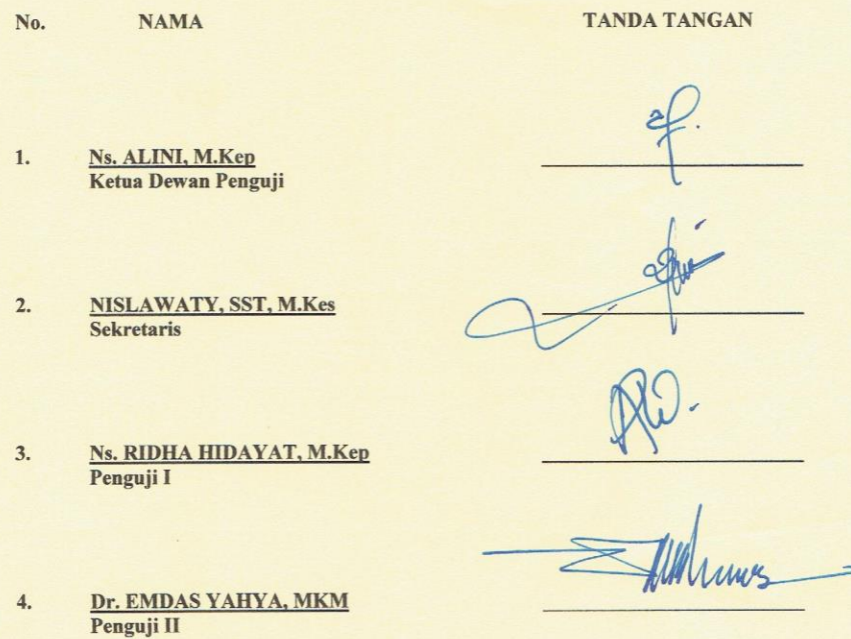 No. NAMA TANDA TANGAN
1. Ns. ALINI, M.Kep
Ketua Dewan Penguji
2. NISLAWATY, SST, M.Kes
Sekretaris
3. Ns. RIDHA HIDAYAT, M.Kep
Penguji I
4. Dr. EMDAS YAHYA, MKM
Penguji II